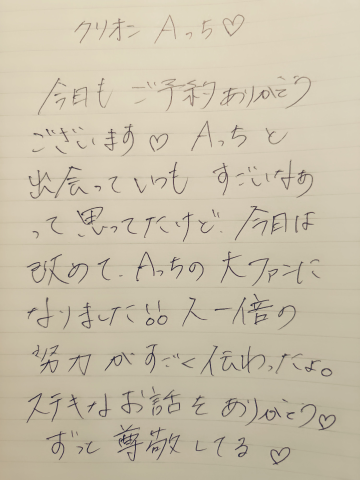 クリオン Aっち♡
今日も ご予約ありがとう
ございます♡ Aっちと
出会っていつも すごいなぁ
って思ってたけど、今日は
改めて、Aっちの大ファンに
なりました!! 人一倍の
努力がすごく伝わったよ。
ステキなお話をありがとう♡
ずっと尊敬してる♡